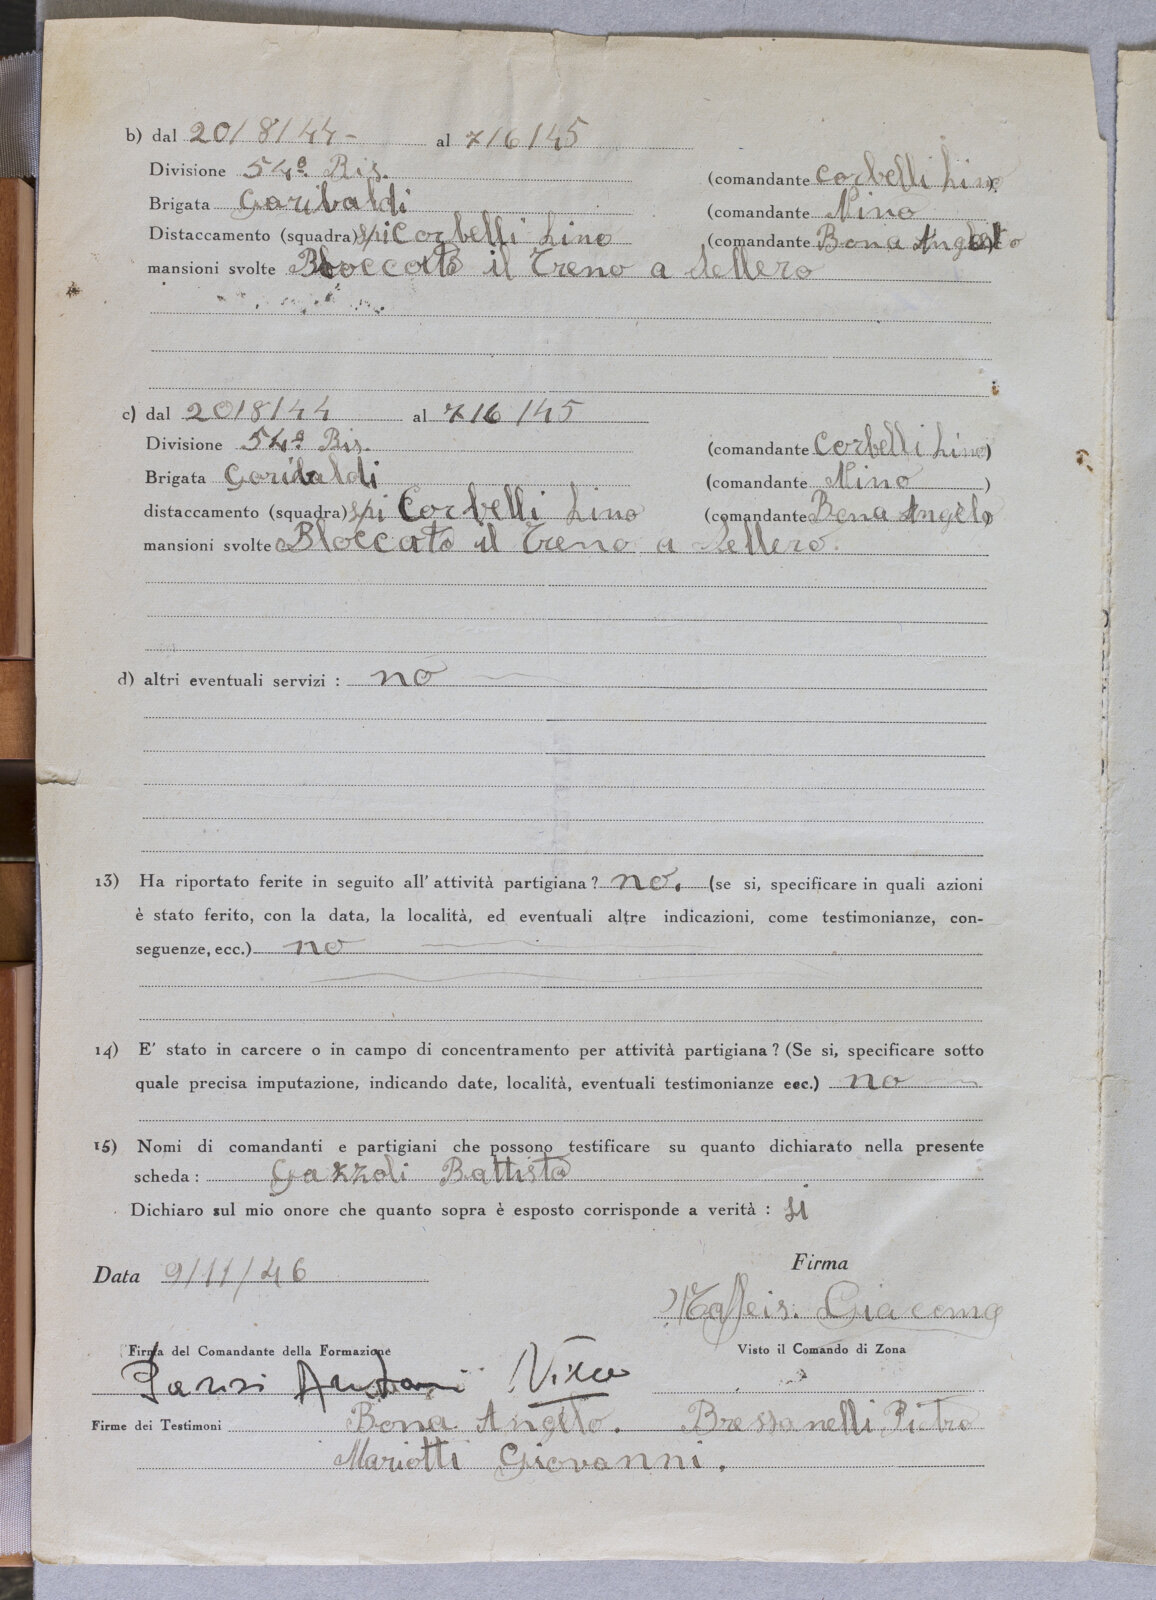 b) dal 20/8/44- al 7/6/45
Divisione 54ª Bis. (comandante Corbelli Lino)
Brigata Garibaldi (comandante Nino
Distaccamento (squadra) spi Corbelli Lino (comandante Bona Angelo
mansioni svolte Bloccato il Treno a Sellero
c) dal 20/8/44 al 7/6/45
Divisione 54ª Bis. (comandante Corbelli Lino)
Brigata Garibaldi (comandante Nino )
distaccamento (squadra) spi Corbelli Lino (comandante Bona Angelo
mansioni svolte Bloccato il Treno a Sellero.
d) altri eventuali servizi : no
13) Ha riportato ferite in seguito all'attività partigiana ? no. (se si, specificare in quali azioni
è stato ferito, con la data, la località, ed eventuali altre indicazioni, come testimonianze, con-
seguenze, ecc.) no
14) E' stato in carcere o in campo di concentramento per attività partigiana ? (Se si, specificare sotto
quale precisa imputazione, indicando date, località, eventuali testimonianze eec.) no
15) Nomi di comandanti e partigiani che possono testificare su quanto dichiarato nella presente
scheda : Gazzoli Battista
Dichiaro sul mio onore che quanto sopra è esposto corrisponde a verità : si
Data 9/11/46 Firma
Maffeis. Giacomo
Firma del Comandante della Formazione Visto il Comando di Zona
Parisi Antoni Nino
Firme dei Testimoni Bona Angelo. Bressanelli Pietro
Mariotti Giovanni.